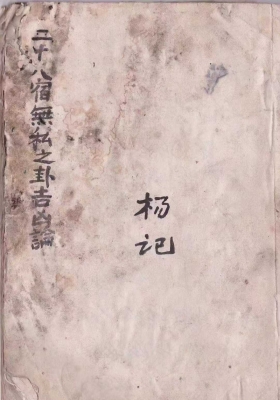 二十八宿無私之卦吉凶論
杨记